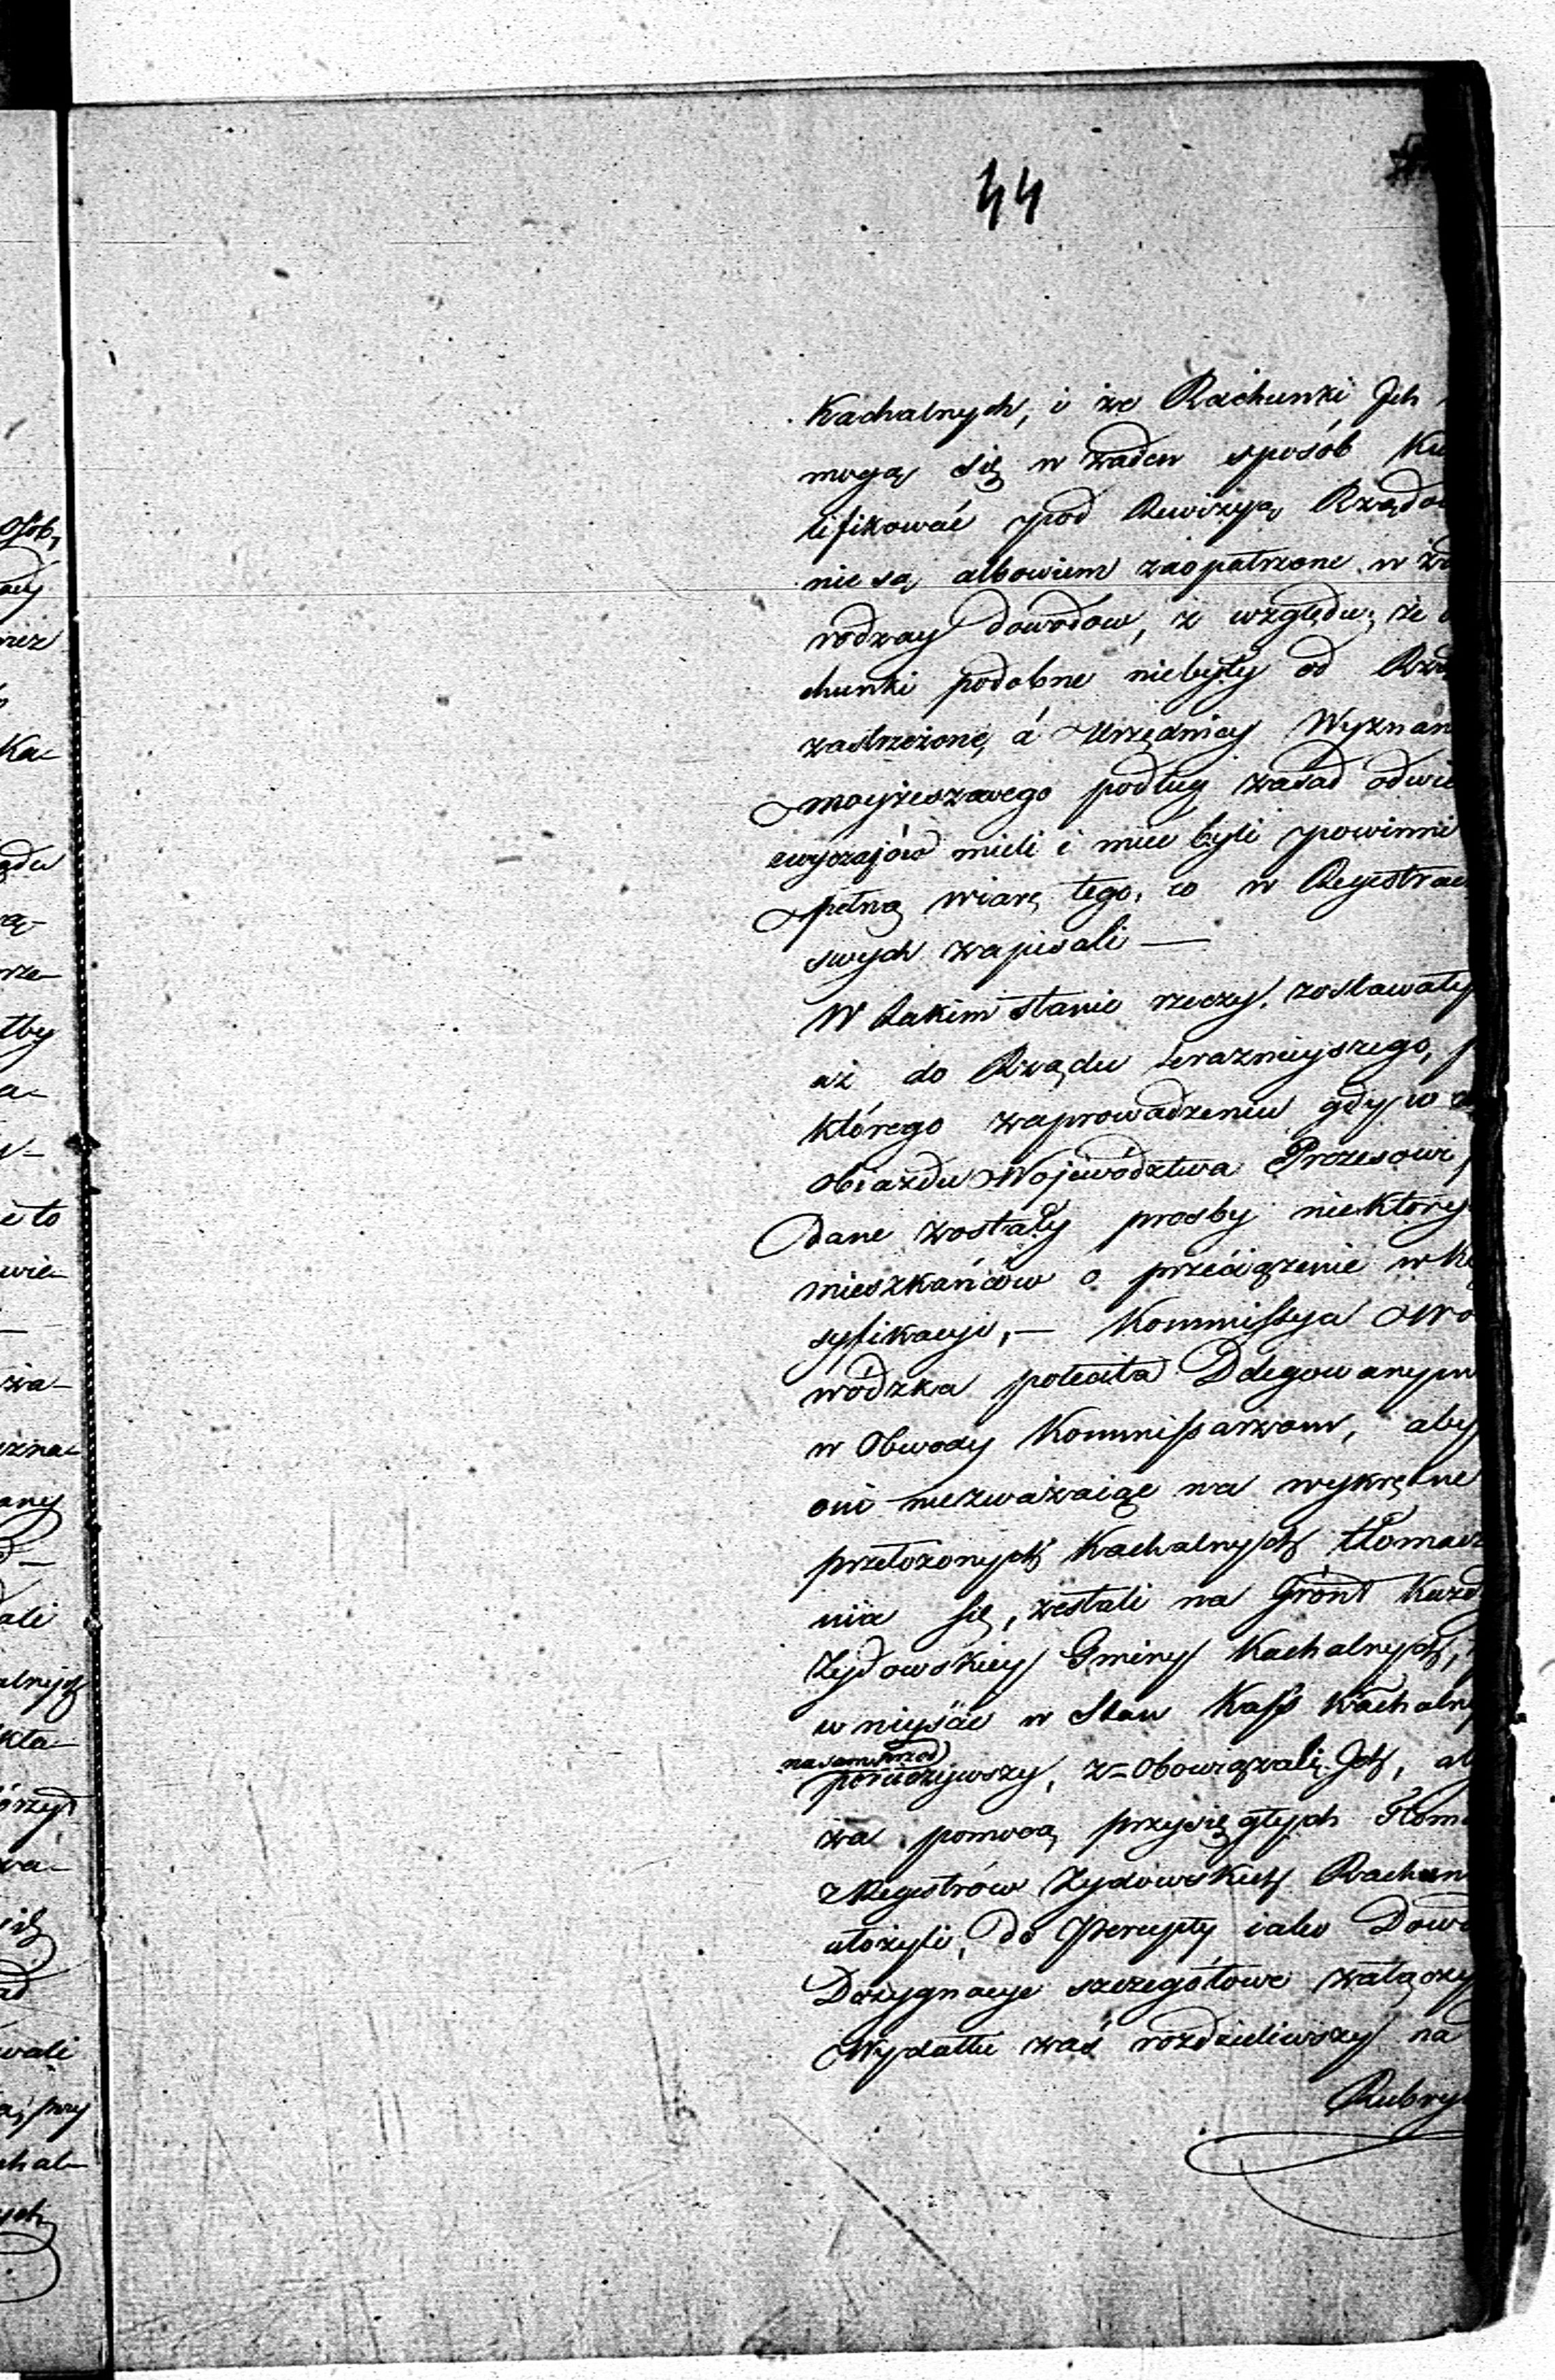 44
Kachalnych, i że Rachunki Jch
mogą się w żaden sposób
lifikować pod Rewizyą Rządo
nie są albowiem zaopatrzone w
rodzay dowodow, z względu, że
chunki podobne niebyły od Rzą
zastrzeżone, á Urzędnicy Wyznan
moyżeszowego podług zasad odwie
zwyczajów mieli i mieć byli powinni
pełną wiarę tego, co w Regestrach
swych zapisali —
W takim stanie rzeczy, zostawały
aż do Rządu terazmieyszego,
którego zaprowadzeniu gdy w
obiazdu Województwa Prezesowi
dane zostały prosby niektóry
mieszkańców o przeciążenie w Kla
syfikacyi, — Kommissya Wo
wódzka poleciła Delegowanym
w Obwody Kommissarzom, aby
oni niezważaiąc na wykrętne
przełożonych Kachalnych tłomacze
nia się, zestali na Grónt Każd
Żydowskiey Gminy Kachalnych,
wniyście w Stan Kass Kachalny
nasamprzod
poruczywszy, z=obowiązali Jch, ab
za pomocą przysięgłych Tłom
z Regestrów Żydowskich Rachun
ułożyli, do Percepty iako Dowo
Dezygnacye szczegółowe załączy
Wydatki zaś rozdzieliwszy na
Rubry
osób,
nież
Ka-
ądu
rze-
łby
a-
ie to
wie-
—
za-
zna-
any
ali
alnych
kła-
órzy
wali
, przy
chal-
ych